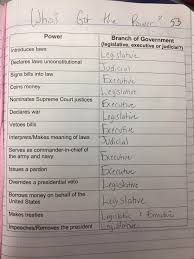 Who's Got the Power? 53
Power Branch of Government
(legislative, executive or judicial?)
Introduces laws Legislative
Declares laws unconstitutional Judicial
Signs bills into law Executive
Coins money Legislative
Nominates Supreme Court justices Executive
Declares war Legislative
Vetoes bills Executive
Interprets/Makes meaning of laws Judicial
Serves as commander-in-chief of
the army and navy Executive
Issues a pardon Executive
Overrides a presidential veto Legislative
Borrows money on behalf of the
United States Legislative
Makes treaties Legislative + Executive
Impeaches/Removes the president Legislative